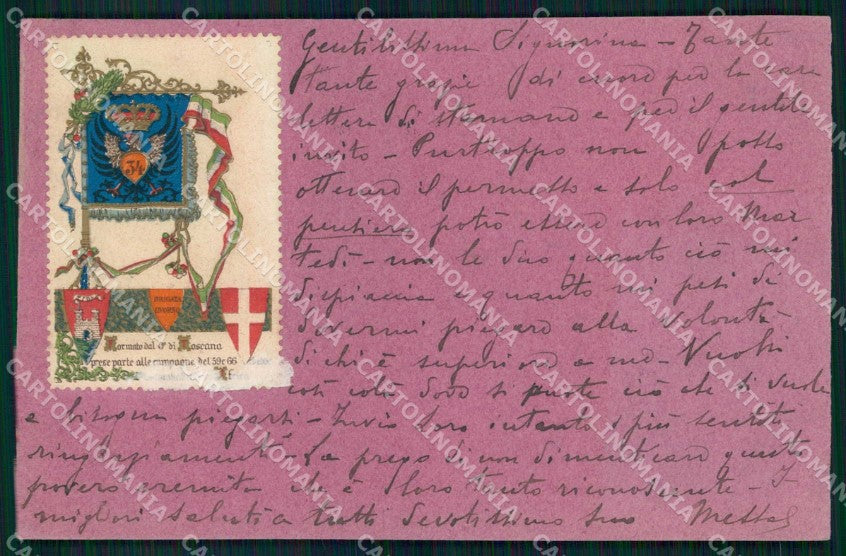 Gentilissima Signorina - Tante
tante grazie di cuore per la cara
lettera di stamane e per il gentile
invito - Purtroppo non posso
ottenere il permesso e solo col
pensiero potrò essere con loro Mar
tedì - non le dico quanto ciò mi
dispiaccia e quanto mi pesi di
dovermi piegare alla volontà
di chi è superiore a me. Vuolsi
così colà dove si puote ciò che si vuole
e bisogna piegarsi - Invio loro intanto i più sentiti
ringraziamenti. La prego di non dimenticare questo
povero eremita che è loro tanto riconoscente - I
migliori saluti a tutti devotissimo suo
34
BRIGATA
LIVORNO
Formato dal G. di Toscana
prese parte alle campagne del 59 e 66
CARTOLINOMANIA